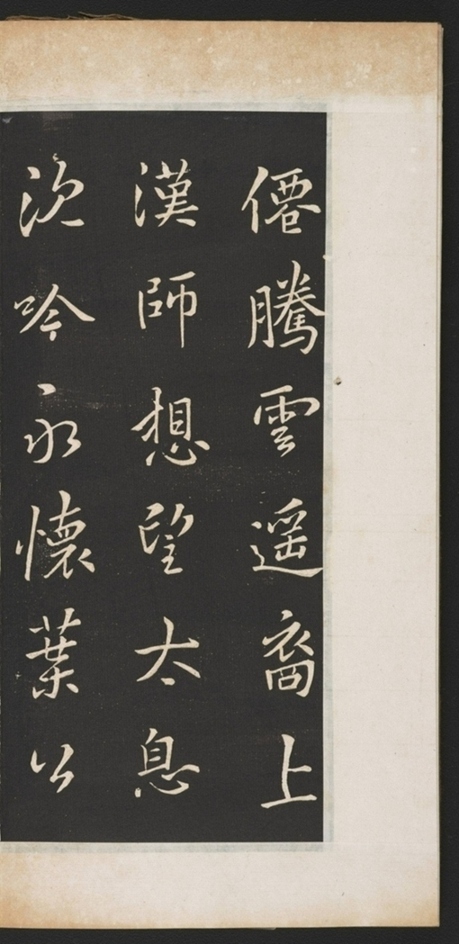 僊騰雲遥裔上
漢師想望太息
次吟永懷葉公